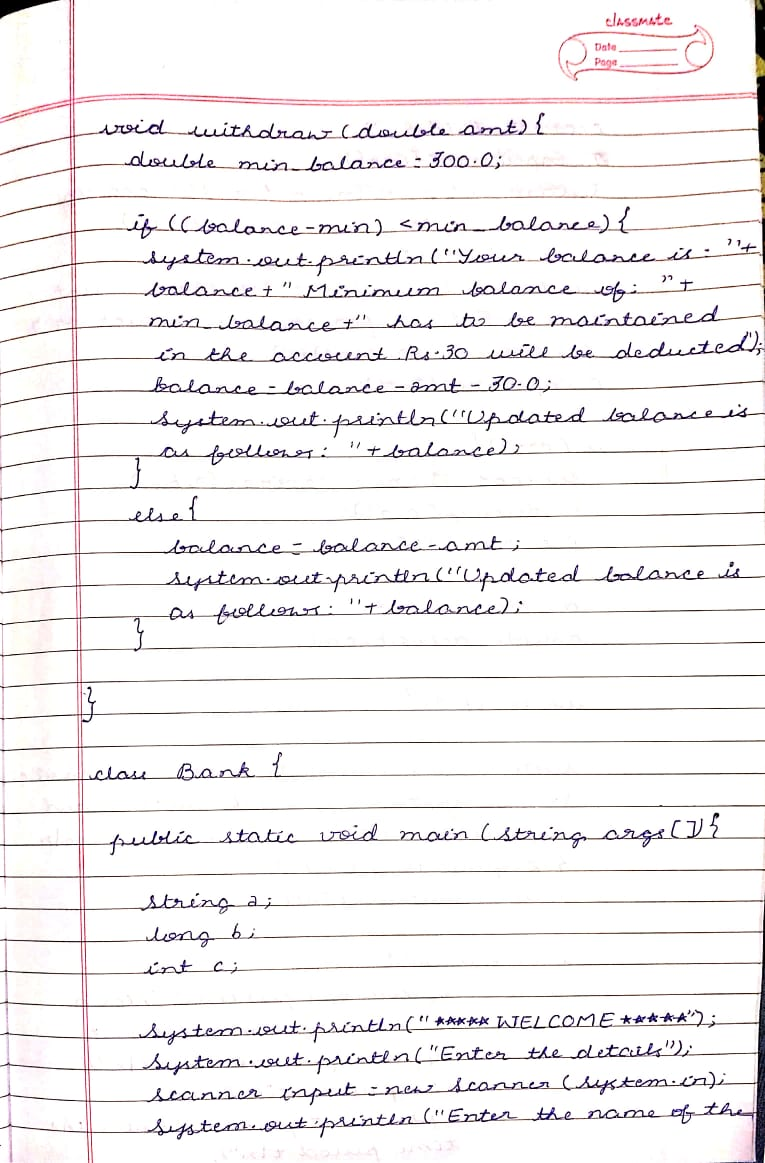 classmate
Date
Page
void withdraw (double amt) {
double min_balance = 300.0;
if ((balance-min) <min_balance) {
system.out.println ("Your balance is : "+
balance + " Minimum balance of: " +
min_balance +" has to be maintained
in the account. Rs.30 will be deducted");
balance = balance - amt - 30.0;
system.out.println ("Updated balance is
as follows: "+ balance);
}
else {
balance = balance - amt ;
system.out.println ("Updated balance is
as follows: "+ balance);
}
}
class Bank {
public static void main (string args []) {
string a;
long b;
int c;
system.out.println (" ***** WELCOME *****");
system.out.println ("Enter the details");
scanner input = new scanner (system.in);
system.out.println ("Enter the name of the